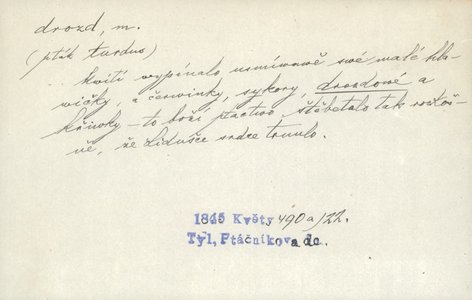 drozd, m.
(pták turdus)
Kvítí vypínalo usmívavě své malé hla-
vičky, a červinky, sykory, drozdové a
křivky – to boží ptactvo štěbetalo tak rozkoš-
ně, že Lidušce srdce trnulo.
1845 Květy 490a/22.
Tyl, Ptáčníkova dc.